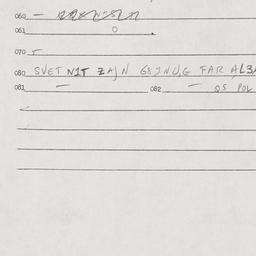 060 —
061 0
070
080 SVET NIT ZAJN GEINUG FAR ALBA
081 — 082 — QS POL